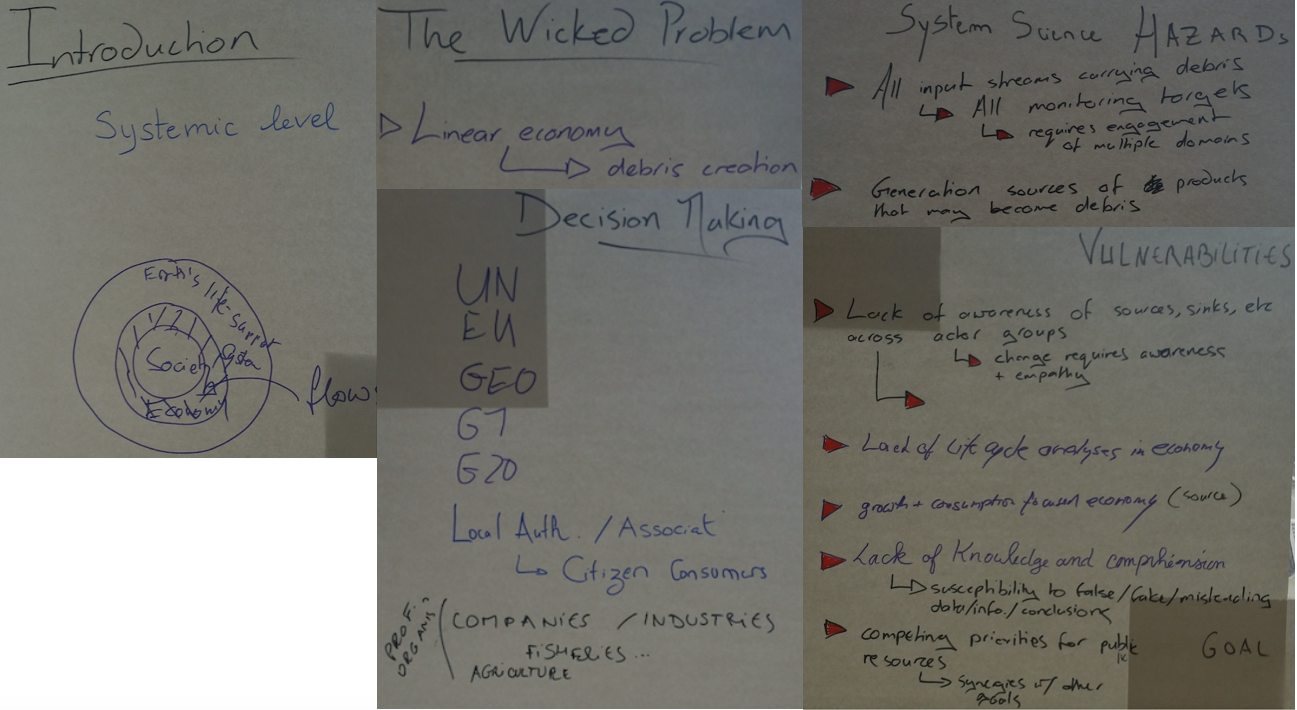 Introduction
Systemic level
Earth's life-support
System
Society
Economy
flow
The Wicked Problem
Linear economy
debris creation
Decision Making
UN
EU
GEO
G7
G20
Local Auth. / Associat
Citizen Consumers
PROF.
ORGANIS
COMPANIES / INDUSTRIES
FISHERIES ...
AGRICULTURE
System Science HAZARDs
All input streams carrying debris
All monitoring targets
requires engagement
of multiple domains
Generation sources of products
that may become debris
VULNERABILITIES
Lack of awareness of sources, sinks, etc
across actor groups
change requires awareness
+ empathy
Lack of life cycle analyses in economy
growth + consumption focused economy (source)
Lack of Knowledge and comprehension
susceptibility to false/fake/misleading
data/info./conclusions
competing priorities for public
resources
synergies w/ other
goals
GOAL